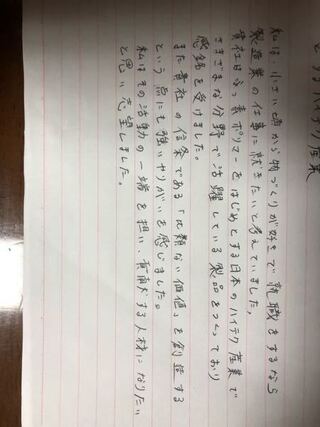 とするハイテク産業
私は、小さい頃から物づくりが好きで就職をするなら
製造業の仕事に就きたいと考えていました。
貴社はふっ素ポリマーをはじめとする日本のハイテク産業で
さまざまな分野で活躍している製品をつくっており
感銘を受けました。
また貴社の信条である「比類ない価値」を創造する
という点にも強いやりがいを感じました。
私はその活動の一端を担い、貢献する人材になりたい
と思い志望しました。